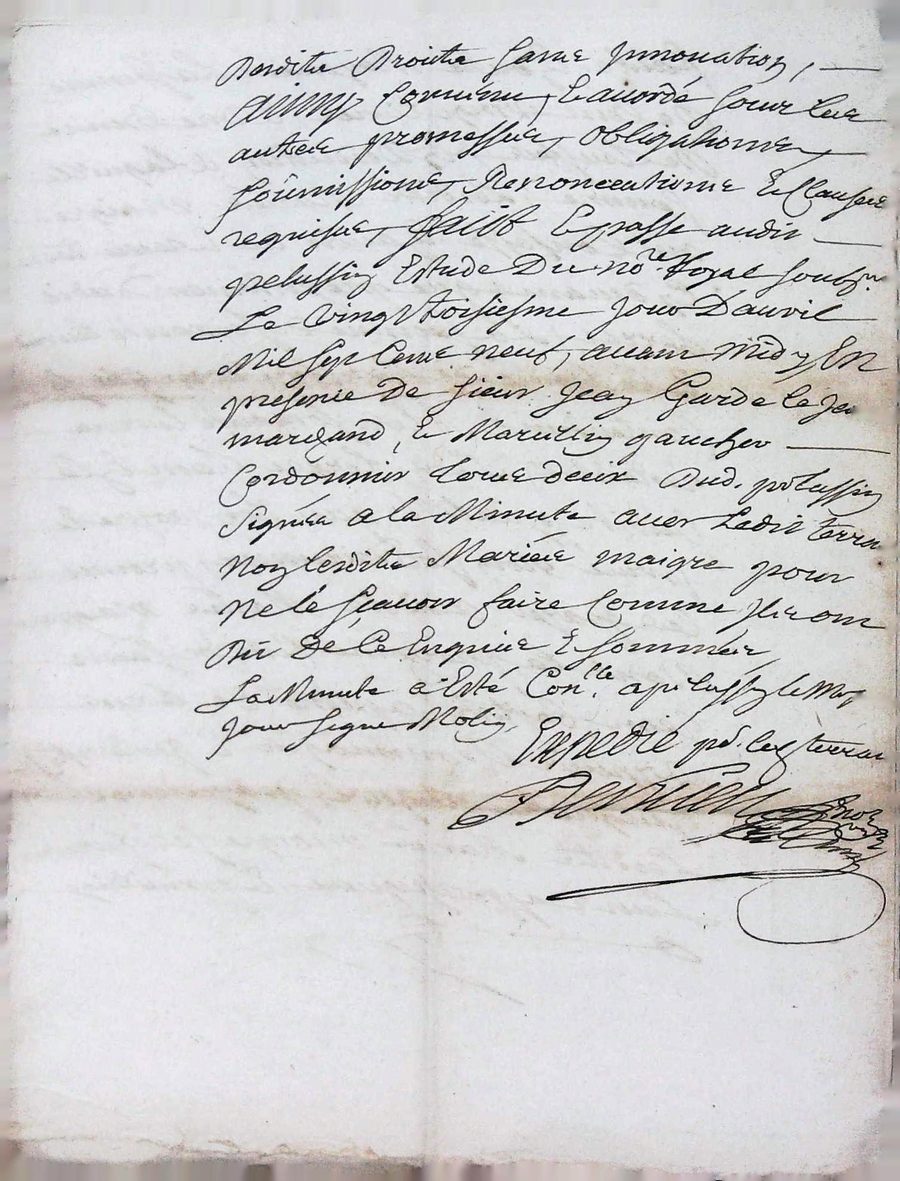 Desdits Droits sans Jnnovation,
ainsy Convenu, & accordé sous les
autres promesses, obligations,
soûmissions, Renonceations & Clauses
requises, faict & passé audit
pelussin Estude Du no.re Royal soubz.né
Le vingt troisiesme jour D'auril
Mil sept Cens neuf, auant midy En
presence De sieur Jean Garde le Je
marchand, & Marcellin gaucher
Cordonnier tous deux Dud. pelussin
signés a la Minute auec Ledit terra
Non lesdits Mariés maigre pour
ne le sçauoir faire Comme Jls ont
Dit De Ce Enquis & sommés
La Minute a Esté Con.lle a pelussin le M
jour signé Molin.
Expedié pr. les terra